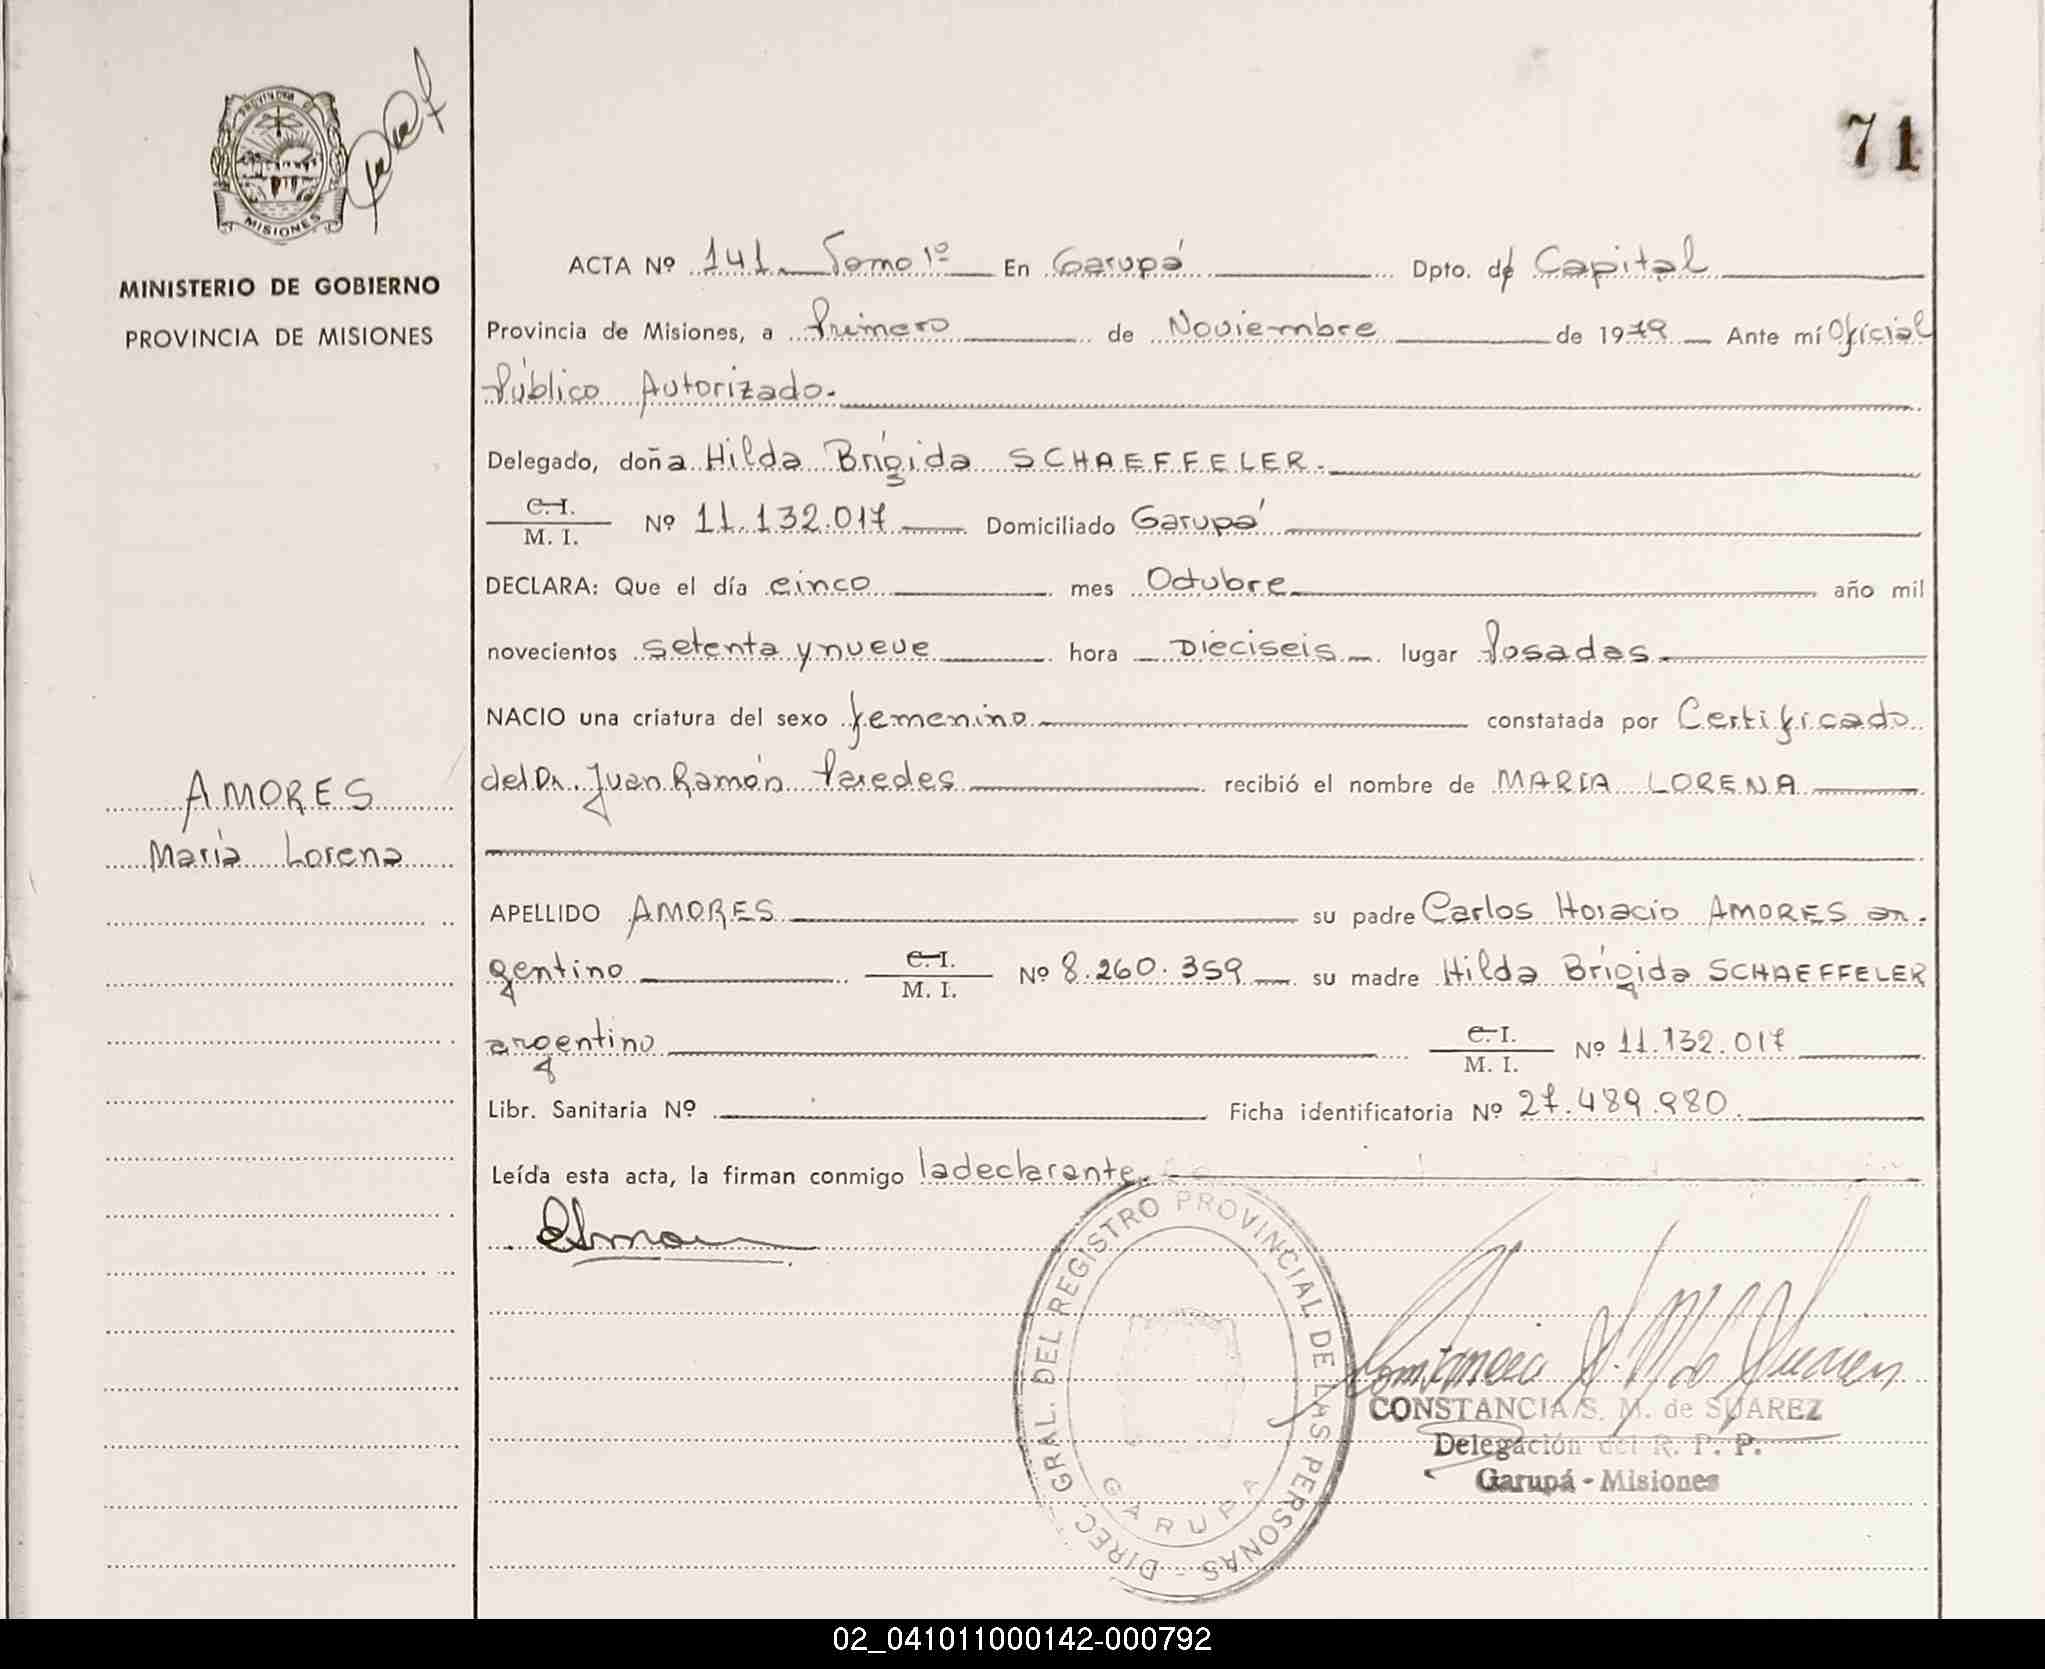 PROVINCIA DE
MISIONES
MINISTERIO DE GOBIERNO
PROVINCIA DE MISIONES
71
ACTA Nº 141 Tomo 1º En Garupá Dpto. de Capital
Provincia de Misiones, a Primero de Noviembre de 1979 Ante mí Oficial
Público Autorizado.
Delegado, doña Hilda Brígida SCHAEFFELER.
C. I.
M. I. Nº 11.132.017 Domiciliado Garupá
DECLARA: Que el día cinco mes Octubre año mil
novecientos setenta y nueve hora Dieciseis lugar Posadas
NACIO una criatura del sexo femenino constatada por Certificado
del Dr. Juan Ramón Paredes recibió el nombre de MARIA LORENA
AMORES
María Lorena
APELLIDO AMORES su padre Carlos Horacio AMORES ar-
gentino C. I. M. I. Nº 8.260.359 su madre Hilda Brígida SCHAEFFELER
argentino C. I. M. I. Nº 11.132.017
Libr. Sanitaria Nº Ficha identificatoria Nº 27.489.980.
Leída esta acta, la firman conmigo la declarante.
DIREC. GRAL. DEL REGISTRO PROVINCIAL DE LAS PERSONAS -
GARUPA
CONSTANCIA S. M. de SUAREZ
Delegación del R. P. P.
Garupá - Misiones
02_041011000142-000792